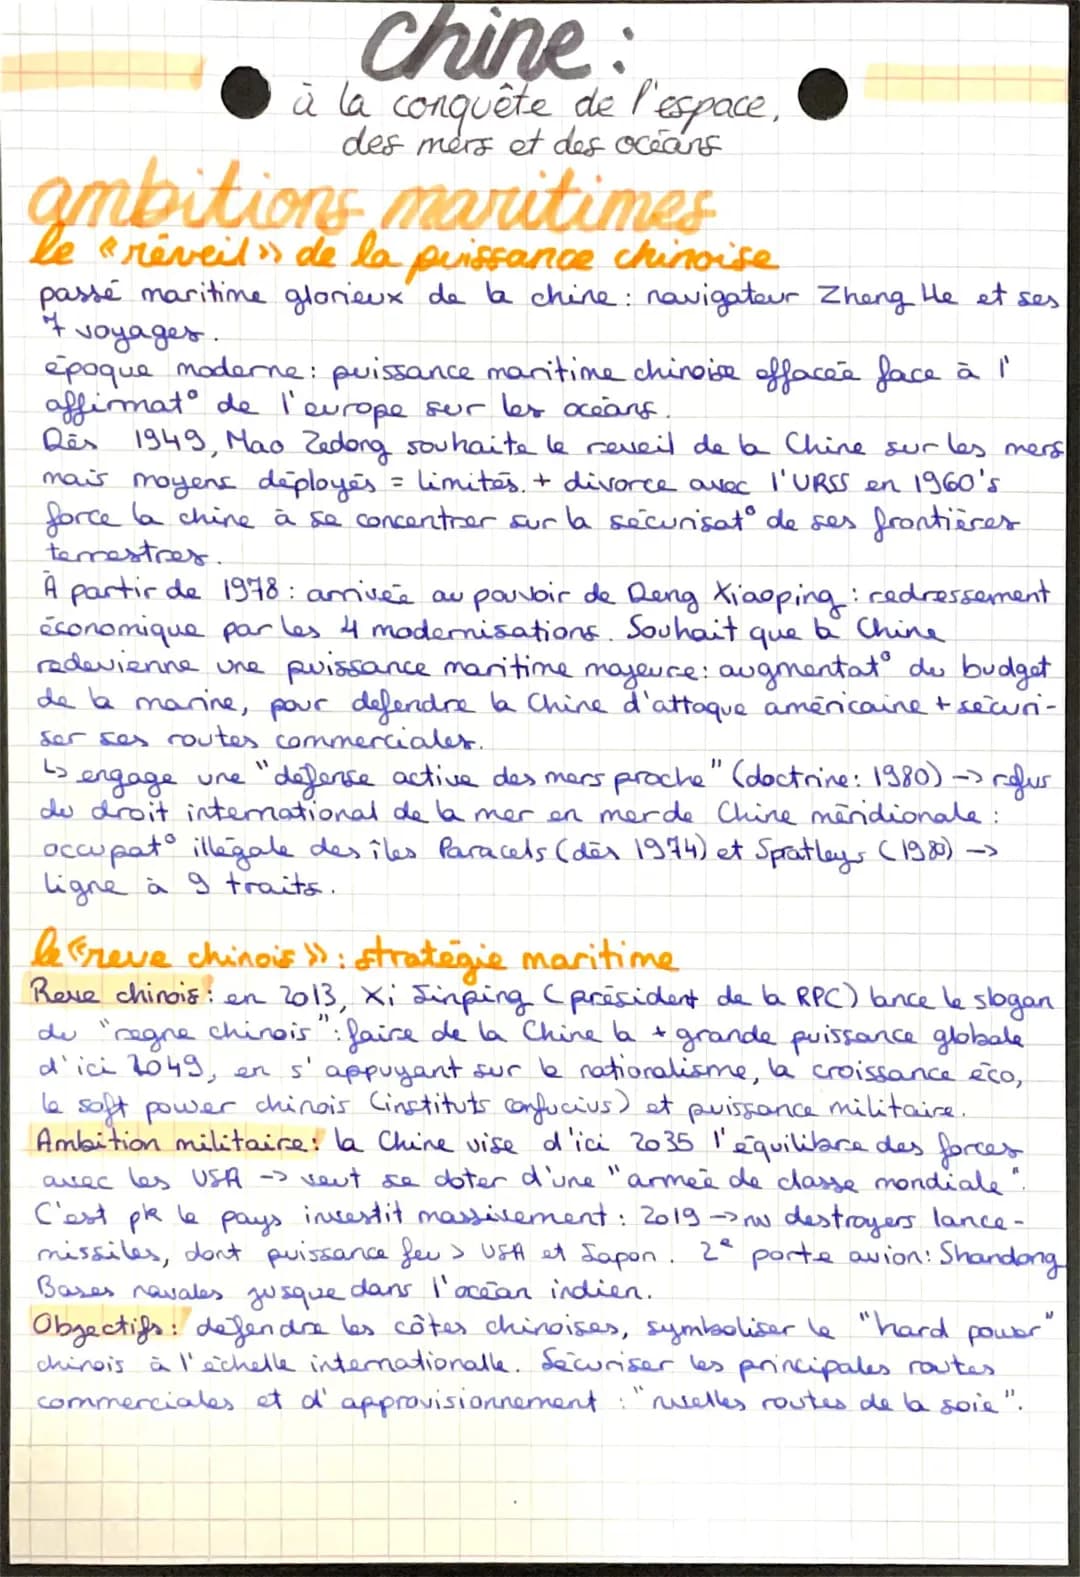 Chine :
à la conquête de l'espace,
des mers et des océans
ambitions maritimes
le « réveil » de la puissance chinoise
passé maritime glorieux de la chine : navigateur Zheng He et ses
7 voyages.
époque moderne : puissance maritime chinoise effacée face à l'
affirmat° de l'europe sur les océans.
Dès 1949, Mao Zedong souhaite le reveil de la Chine sur les mers
mais moyens déployés = limités. + divorce avec l'URSS en 1960's
force la chine à se concentrer sur la sécurisat° de ses frontières
terrestres.
À partir de 1978 : arrivée au pouvoir de Deng Xiaoping : redressement
économique par les 4 modernisations. Souhait que la Chine
redevienne une puissance maritime majeure : augmentat° du budget
de la marine, pour defendre la Chine d'attaque américaine + sécuri-
ser ses routes commerciales.
↳ engage une "défense active des mers proche" (doctrine : 1980) -> refus
du droit international de la mer en mer de Chine méridionale :
occupat° illégale des îles Paracels (dès 1974) et Spratleys (1980) ->
ligne à 9 traits.
le « reve chinois » : stratégie maritime
Reve chinois : en 2013, Xi Jinping (président de la RPC) lance le slogan
du "regne chinois" : faire de la Chine la + grande puissance globale
d'ici 2049, en s'appuyant sur le nationalisme, la croissance éco,
le soft power chinois (instituts confucius) et puissance militaire.
Ambition militaire : la Chine vise d'ici 2035 l'équilibre des forces
avec les USA -> veut se doter d'une "armée de classe mondiale".
C'est pk le pays investit massivement : 2019 -> nv destroyers lance-
missiles, dont puissance feu > USA et Japon. 2e porte avion : Shandong
Bases navales jusque dans l'océan indien.
Objectifs : défendre les côtes chinoises, symboliser le "hard power"
chinois à l'échelle internationalle. Sécuriser les principales routes
commerciales et d'approvisionnement : "nvelles routes de la soie".